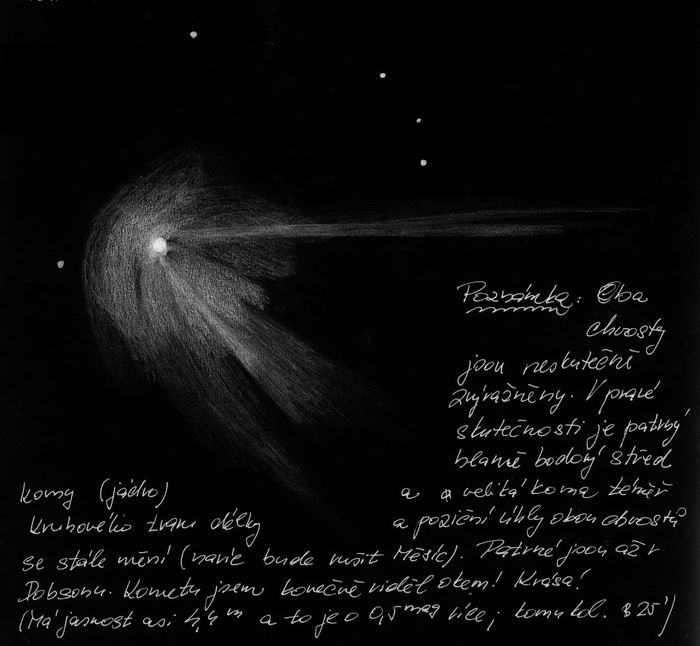 Poznámka: Oba
chvosty
jsou neskutečně
zvýrazněny. V pravé
skutečnosti je patrný
hlavně bodový střed
a veliká koma téměř
komy (jádro)
Kruhového tvaru délky
a poziční úhly obou chvostů
se stále mění (navíc bude rušit Měsíc). Patrné jsou až v
Dobsonu. Kometu jsem konečně viděl okem! Krása!
(Má jasnost asi 4,4 m a to je o 0,5 mag více; komu kol. 25')